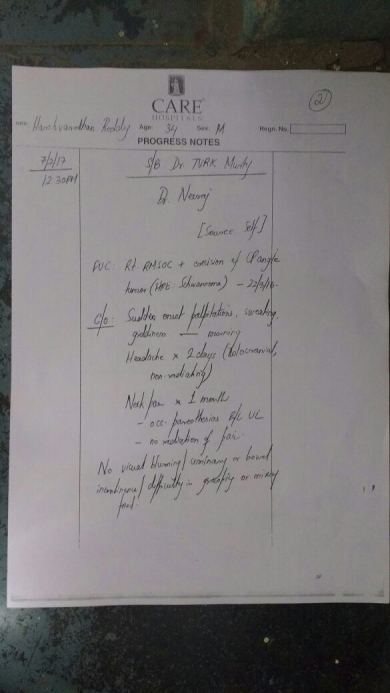 2
CARE
HOSPITALS
Name: Harshvardhan Reddy Age: 34 Sex: M Regn. No.
PROGRESS NOTES
7/2/17
12:30PM
S/B Dr. TVRK Murty
Dr. Neeraj
[Source Self]
Rt. RMSOC + excision of CP angle
tumor (HPE: Schwannoma) - 22/3/16.
C/O: Sudden onset palpitations, sweating,
giddiness — morning
Headache x 2 days (holocranial,
non-radiating)
Neck pain x 1 month
- occ. paresthesias B/L UL
- no radiation of pain.
No visual blurring/ urinary or bowel
incontinence/ difficulty in grasping or mixing
food.